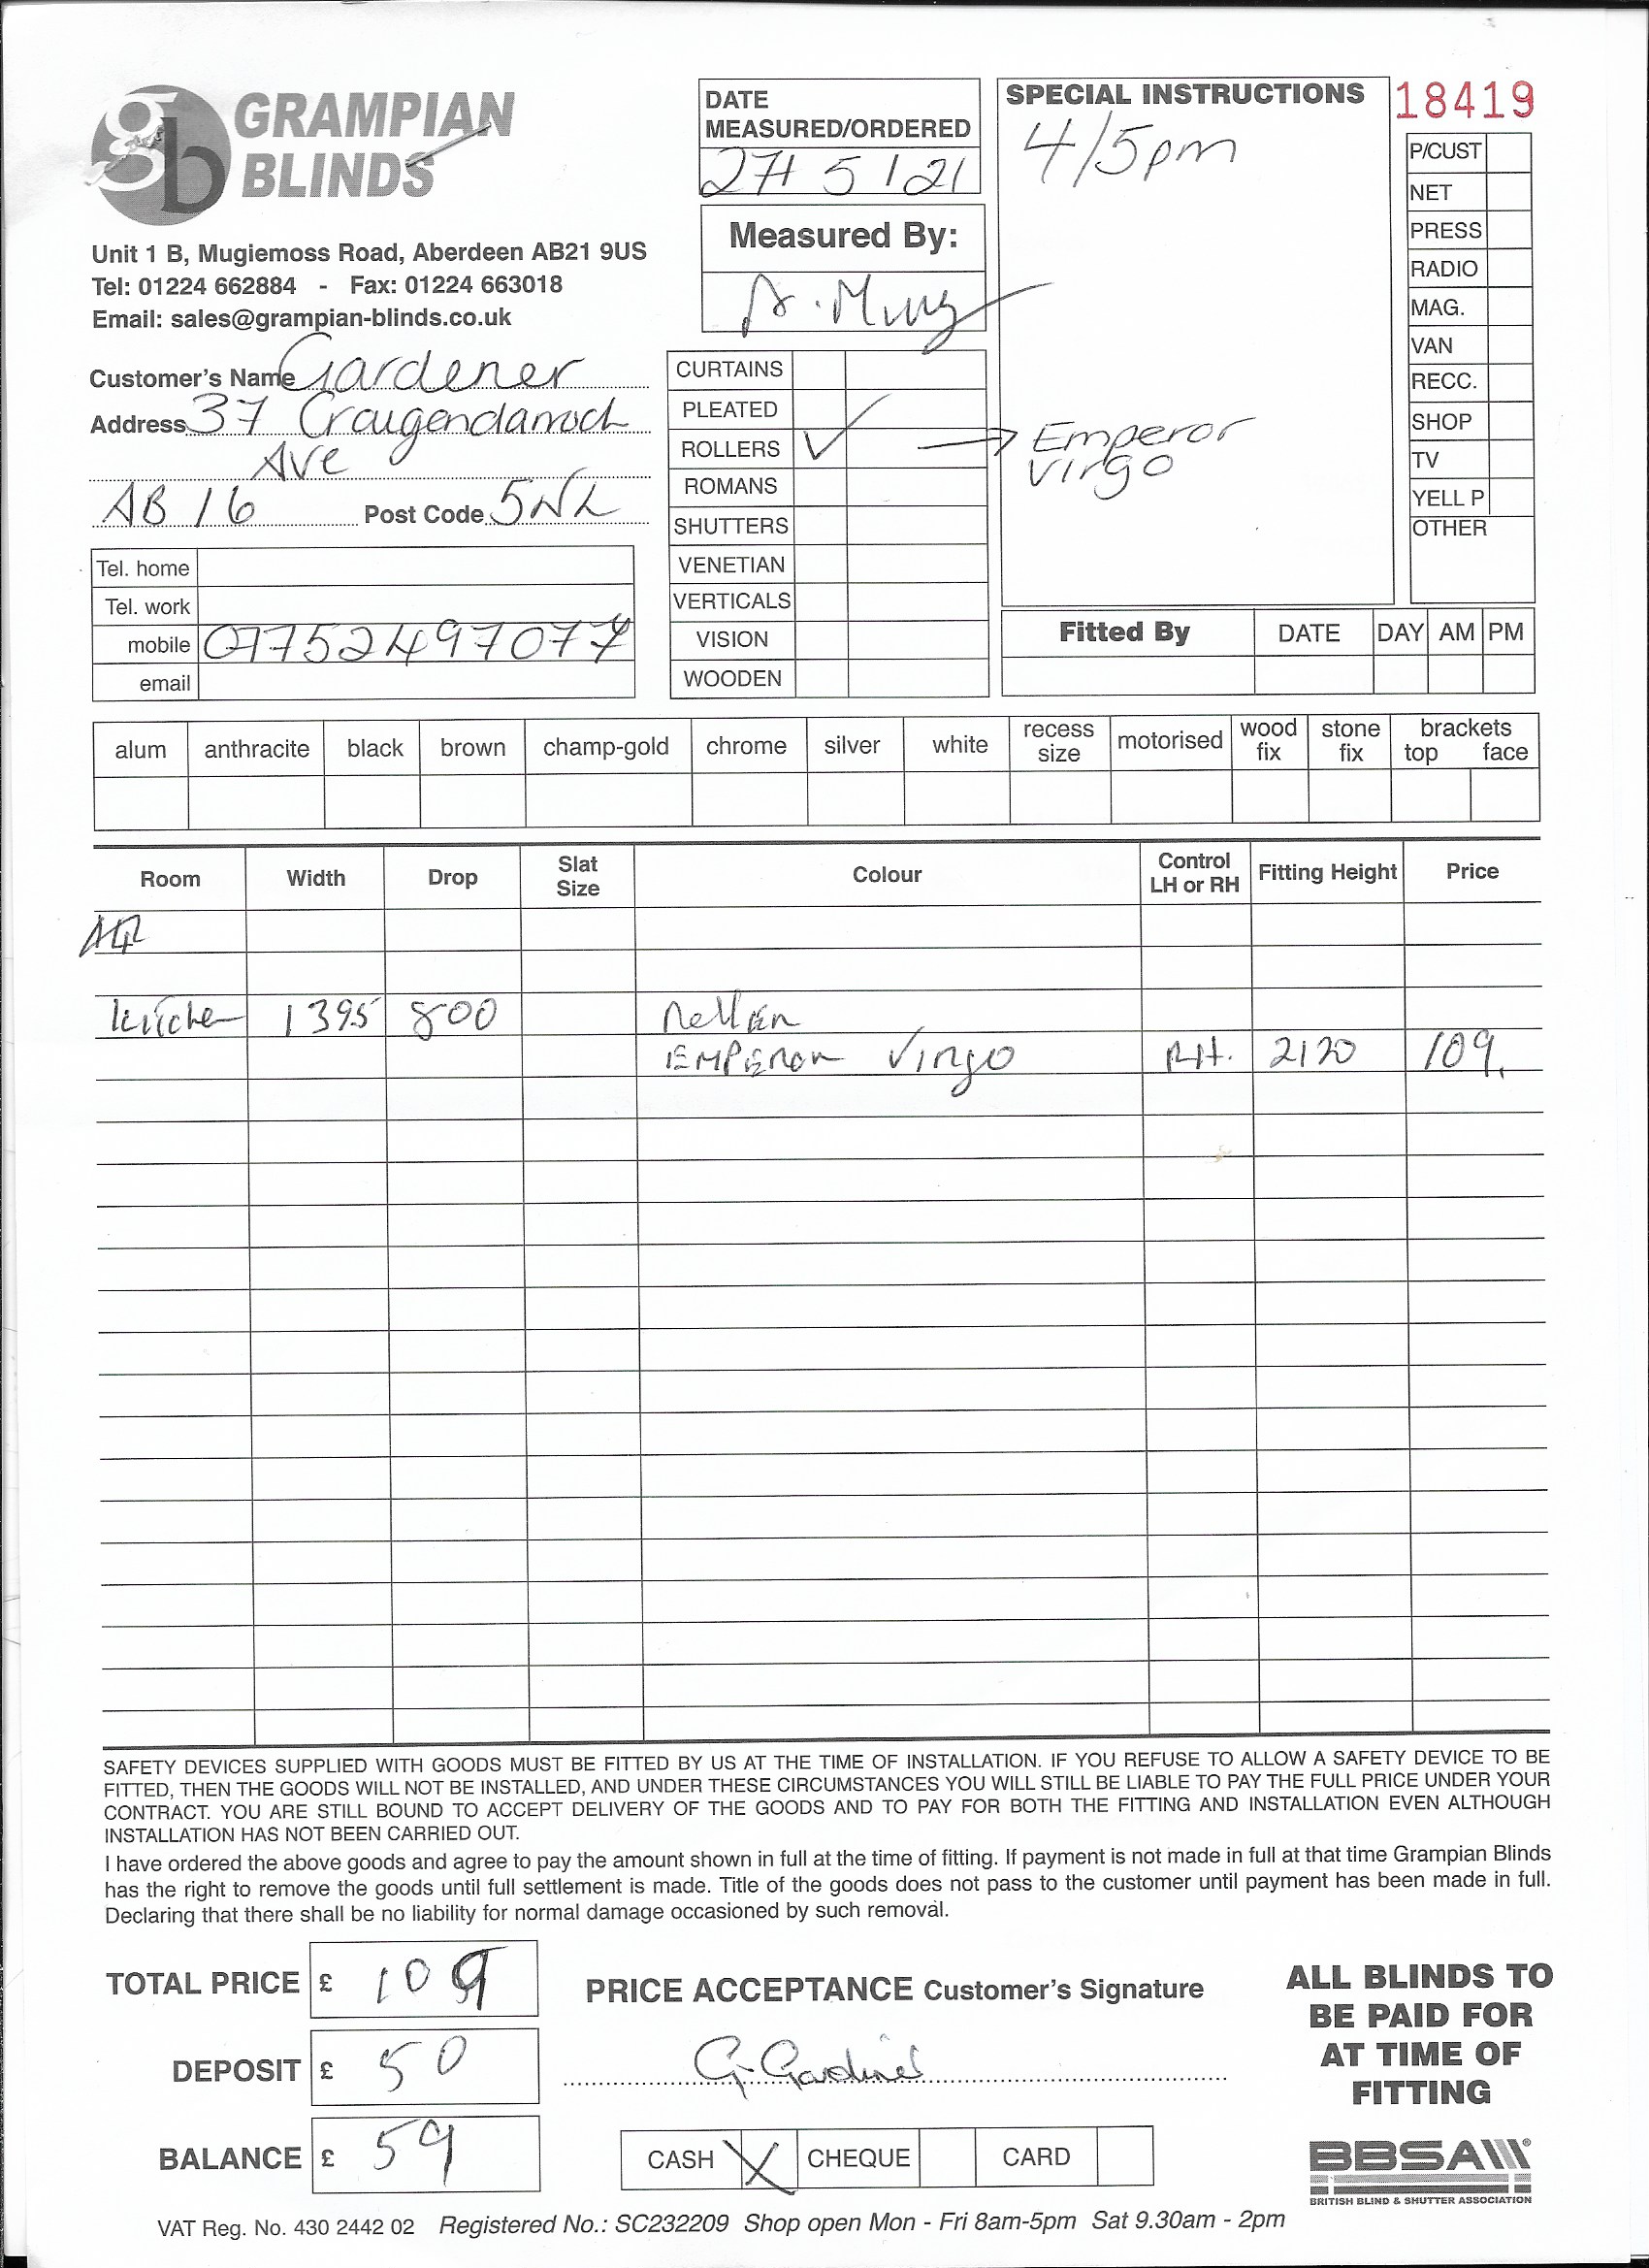 gb GRAMPIAN BLINDS
Unit 1 B, Mugiemoss Road, Aberdeen AB21 9US
Tel: 01224 662884 - Fax: 01224 663018
Email: sales@grampian-blinds.co.uk
Customer's Name Gardener
Address 37 Craigendarroch
Ave
AB16 Post Code 5NL
Tel. home
Tel. work
mobile 07752497077
email
DATE
MEASURED/ORDERED
27/5/21
Measured By:
CURTAINS
PLEATED
ROLLERS ✓
ROMANS
SHUTTERS
VENETIAN
VERTICALS
VISION
WOODEN
SPECIAL INSTRUCTIONS
4/5pm
→ Emperor
Virgo
18419
P/CUST
NET
PRESS
RADIO
MAG.
VAN
RECC.
SHOP
TV
YELL P
OTHER
Fitted By DATE DAY AM PM
alum anthracite black brown champ-gold chrome silver white recess size motorised wood fix stone fix brackets top face
Room Width Drop Slat Size Colour Control LH or RH Fitting Height Price
Kitchen 1395 800 Roller
Emperor Virgo RH. 2120 109.
SAFETY DEVICES SUPPLIED WITH GOODS MUST BE FITTED BY US AT THE TIME OF INSTALLATION. IF YOU REFUSE TO ALLOW A SAFETY DEVICE TO BE
FITTED, THEN THE GOODS WILL NOT BE INSTALLED, AND UNDER THESE CIRCUMSTANCES YOU WILL STILL BE LIABLE TO PAY THE FULL PRICE UNDER YOUR
CONTRACT. YOU ARE STILL BOUND TO ACCEPT DELIVERY OF THE GOODS AND TO PAY FOR BOTH THE FITTING AND INSTALLATION EVEN ALTHOUGH
INSTALLATION HAS NOT BEEN CARRIED OUT.
I have ordered the above goods and agree to pay the amount shown in full at the time of fitting. If payment is not made in full at that time Grampian Blinds
has the right to remove the goods until full settlement is made. Title of the goods does not pass to the customer until payment has been made in full.
Declaring that there shall be no liability for normal damage occasioned by such removal.
TOTAL PRICE £ 109
DEPOSIT £ 50
BALANCE £ 59
PRICE ACCEPTANCE Customer's Signature
G. Gardiner
CASH X CHEQUE CARD
ALL BLINDS TO
BE PAID FOR
AT TIME OF
FITTING
BBSA
BRITISH BLIND & SHUTTER ASSOCIATION
VAT Reg. No. 430 2442 02 Registered No.: SC232209 Shop open Mon - Fri 8am-5pm Sat 9.30am - 2pm